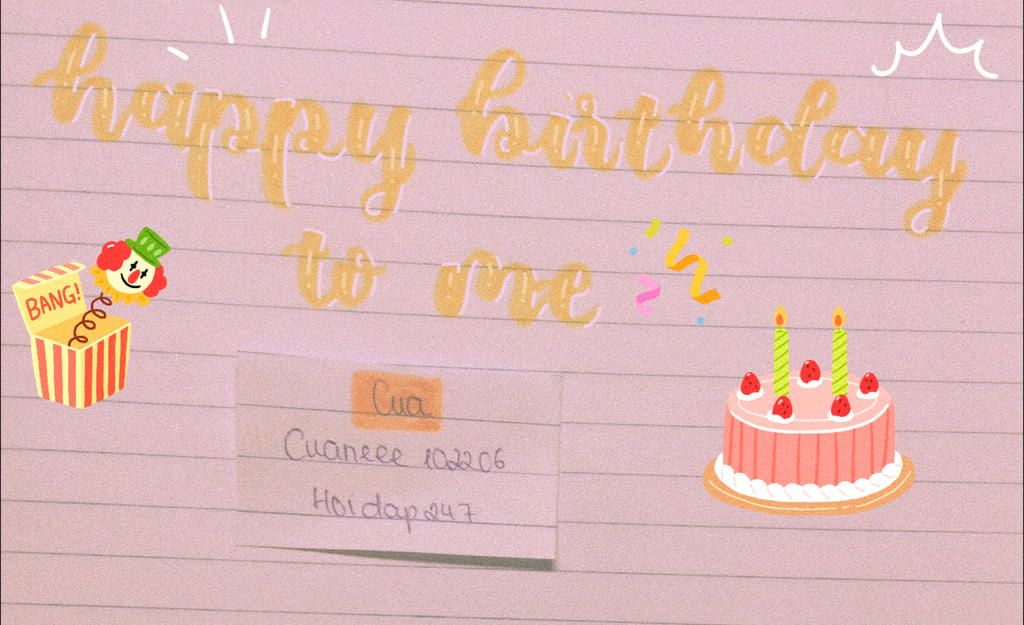 happy birthday
to me
BANG!
Cua
Cuaneee 102206
Hoidap247